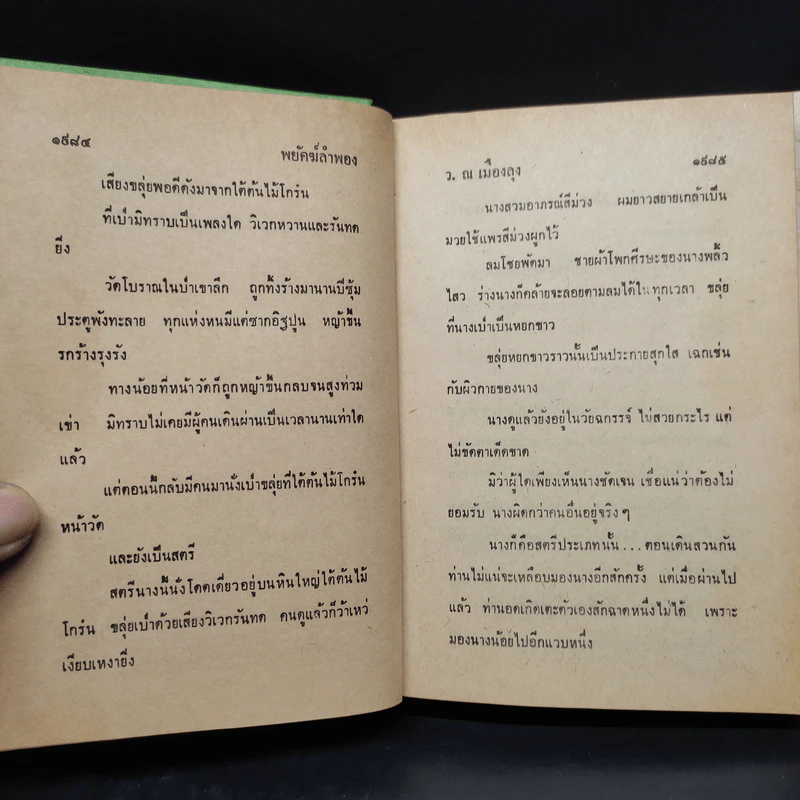 ๑๕๘๔
พยัคฆ์ลำพอง
เสียงขลุ่ยพอดีดังมาจากใต้ต้นไม้โกร๋น
ที่เป่ามิทราบเป็นเพลงใด วิเวกหวานและรันทด
ยิ่ง
วัดโบราณในป่าเขาลึก ถูกทิ้งร้างมานานปีซุ้ม
ประตูพังทะลาย ทุกแห่งหนมีแต่ซากอิฐปูน หญ้าขึ้น
รกร้างรุงรัง
ทางน้อยที่หน้าวัดก็ถูกหญ้าขึ้นกลบจนสูงท่วม
เข่า มิทราบไม่เคยมีผู้คนเดินผ่านเป็นเวลานานเท่าใด
แล้ว
แต่ตอนนี้กลับมีคนมานั่งเป่าขลุ่ยที่ใต้ต้นไม้โกร๋น
หน้าวัด
และยังเป็นสตรี
สตรีนางนี้นั่งโดดเดี่ยวอยู่บนหินใหญ่ใต้ต้นไม้
โกร๋น ขลุ่ยเป่าด้วยเสียงวิเวกรันทด คนดูแล้วก็ว้าเหว่
เงียบเหงายิ่ง
ว. ณ เมืองลุง
๑๕๘๕
นางสวมอาภรณ์สีม่วง ผมยาวสยายเกล้าเป็น
มวยใช้แพรสีม่วงผูกไว้
ลมโชยพัดมา ชายผ้าโพกศีรษะของนางพลิ้ว
ไสว ร่างนางก็คล้ายจะลอยตามลมได้ในทุกเวลา ขลุ่ย
ที่นางเป่าเป็นหยกขาว
ขลุ่ยหยกขาวราวนั้นเป็นประกายสุกใส เฉกเช่น
กับผิวกายของนาง
นางดูแล้วยังอยู่ในวัยฉกรรจ์ ไม่สวยกระไร แต่
ไม่ขัดตาเด็ดขาด
มิว่าผู้ใดเพียงเห็นนางชัดเจน เชื่อแน่ว่าต้องไม่
ยอมรับ นางผิดกว่าคนอื่นอยู่จริงๆ
นางก็คือสตรีประเภทนั้น...ตอนเดินสวนกัน
ท่านไม่แน่จะเหลือบมองนางอีกสักครั้ง แต่เมื่อผ่านไป
แล้ว ท่านอดเกิดเตะตัวเองสักฉาดหนึ่งไม่ได้ เพราะ
มองนางน้อยไปอีกแวบหนึ่ง